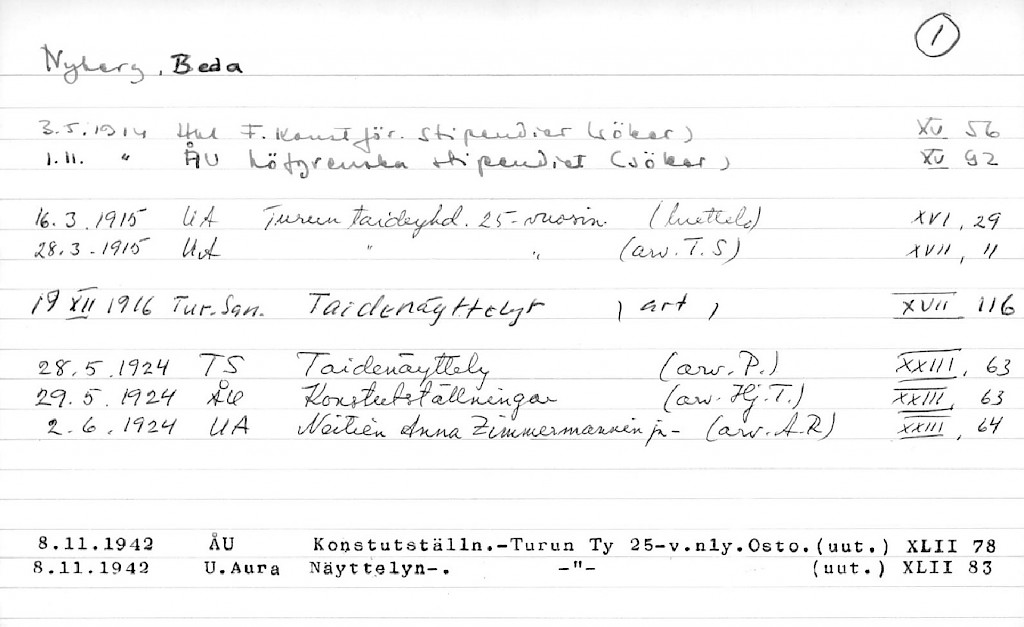 1
Nyberg, Beda
3.5.1914 Hbl F. Konstför. Stipendier (söker) XV 56
1.11. " ÅU Löfgrenska stipendiet (söker) XV 92
16.3.1915 UA Turun taideyhd. 25-vuosin. (luettelo) XVI, 29
28.3-1915 UA " " (arv. T.S) XVII, 11
19 XII 1916 Tur.San. Taidenäyttelyt ) art ) XVII 116
28.5.1924 TS Taidenäyttely (arv. P.) XXIII, 63
29.5.1924 ÅU Konstutställningar (arv. Hj.T.) XXIII, 63
2.6.1924 UA Neitien Anna Zimmermannin ja- (arv. A.R) XXIII, 64
8.11.1942 ÅU Konstutställn.-Turun Ty 25-v.nly.Osto.(uut.) XLII 78
8.11.1942 U.Aura Näyttelyn-. -"- (uut.) XLII 83